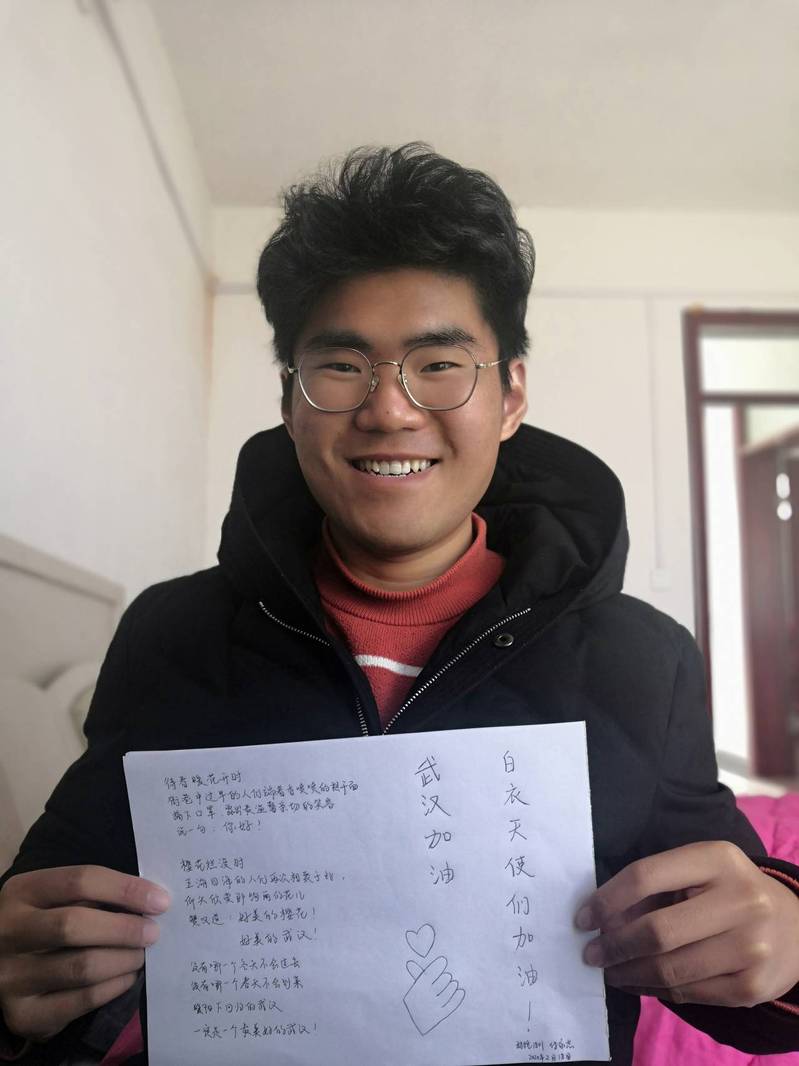 待春暖花开时
街巷中过早的人们端着香喷喷的热干面
摘下口罩,露出最温馨亲切的笑容
说一句:你好!
樱花烂漫时
三海归泽的人们再次相聚于
仰头欣赏那绚丽的花儿
赞叹道:好美的樱花!
好美的武汉!
没有哪一个冬天不会过去
没有哪一个春天不会到来
暖阳下回归的武汉
一定是一个更美好的武汉!
武汉加油
白衣天使们加油!
2020年2月18日